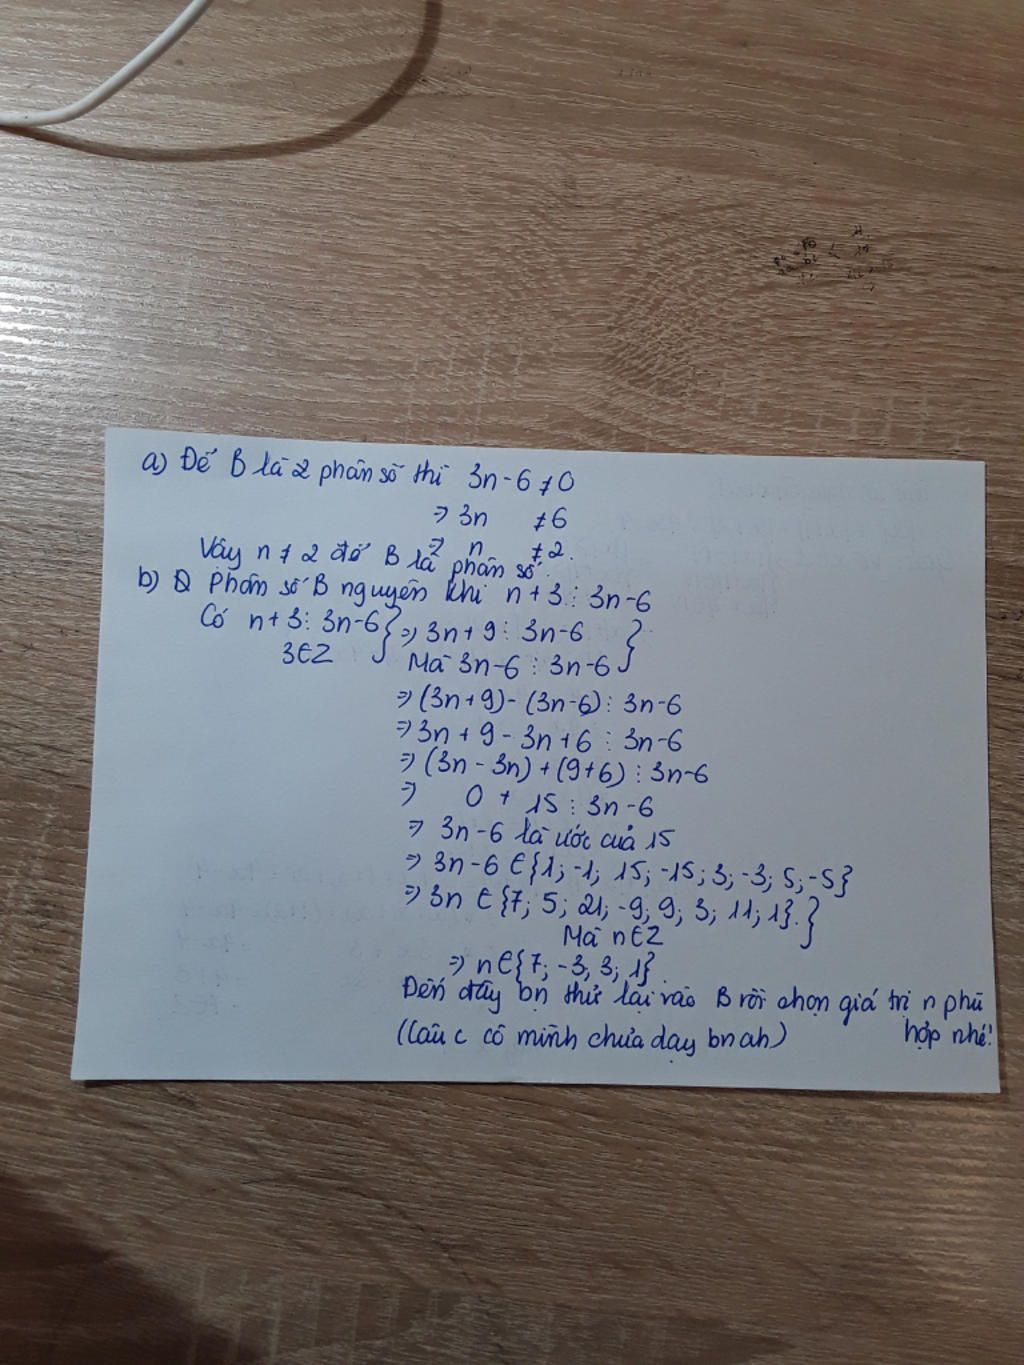 a) Để B là 2 phân số thì 3n-6 ≠ 0
=> 3n ≠ 6
=> n ≠ 2.
Vậy n ≠ 2 để B là phân số.
b) Phân số B nguyên khi n+3 ⋮ 3n-6
Có n+3 ⋮ 3n-6 } => 3n+9 ⋮ 3n-6 }
3∈Z Mà 3n-6 ⋮ 3n-6
=> (3n+9)-(3n-6) ⋮ 3n-6
=> 3n+9-3n+6 ⋮ 3n-6
=> (3n-3n)+(9+6) ⋮ 3n-6
=> 0 + 15 ⋮ 3n-6
=> 3n-6 là ước của 15
=> 3n-6 ∈ {1; -1; 15; -15; 3; -3; 5; -5}
=> 3n ∈ {7; 5; 21; -9; 9; 3; 11; 1}. }
Mà n∈Z
=> n∈{7; -3; 3; 1}.
Đến đây bn thử lại vào B rồi chọn giá trị n phù
hợp nhé!
(Câu c cô mình chưa dạy bn ah)